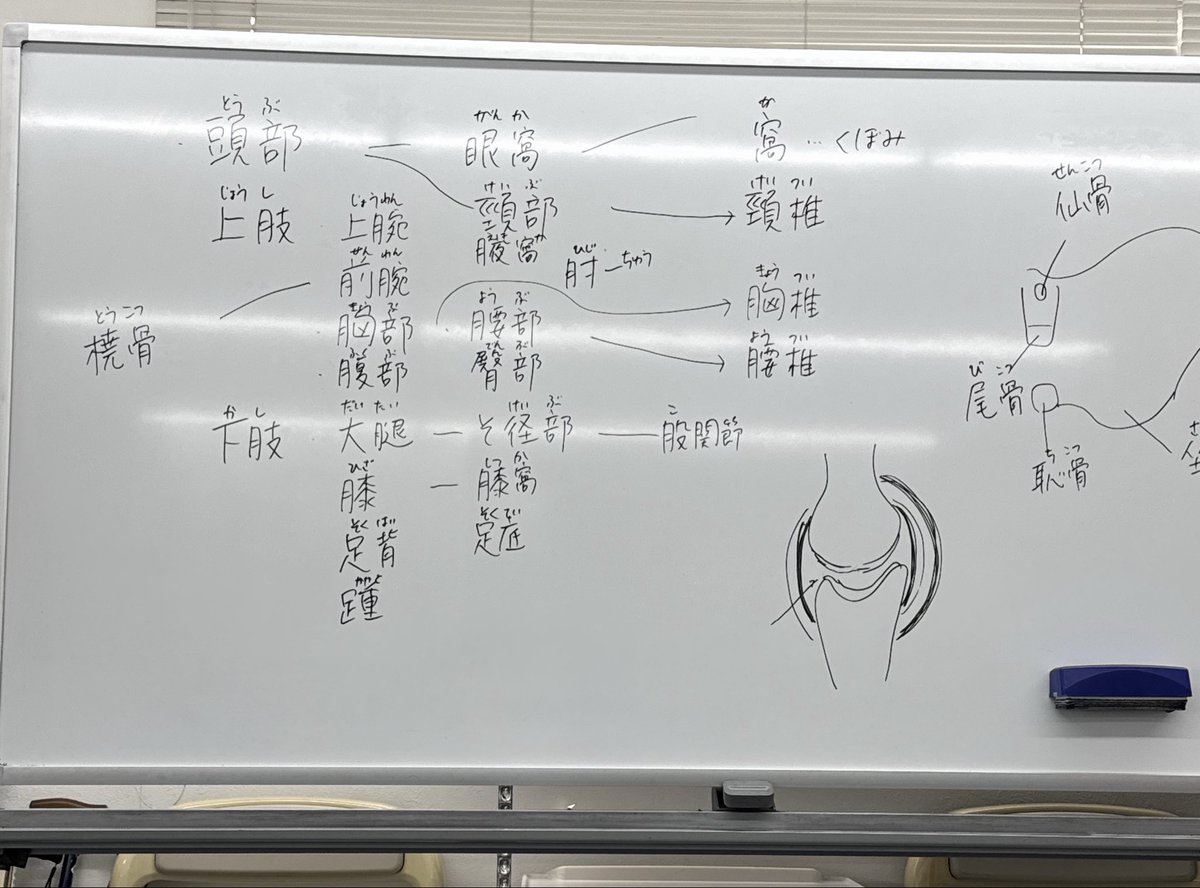 とうぶ
頭部
がんか
眼窩
か
窩…くぼみ
じょうし
上肢
じょうわん
上腕
けいぶ
頸部
けいつい
頸椎
せんこつ
仙骨
ぜんわん
前腕
えきか
腋窩
ひじ ちゅう
肘ー
とうこつ
橈骨
きょうぶ
胸部
ようぶ
腰部
きょうつい
胸椎
ふくぶ
腹部
でんぶ
臀部
ようつい
腰椎
びこつ
尾骨
かし
下肢
だいたい
大腿
けいぶ
そ径部
こ
股関節
ちこつ
恥骨
ひざ
膝
しつか
膝窩
そくはい
足背
そくてい
足底
かかと
踵